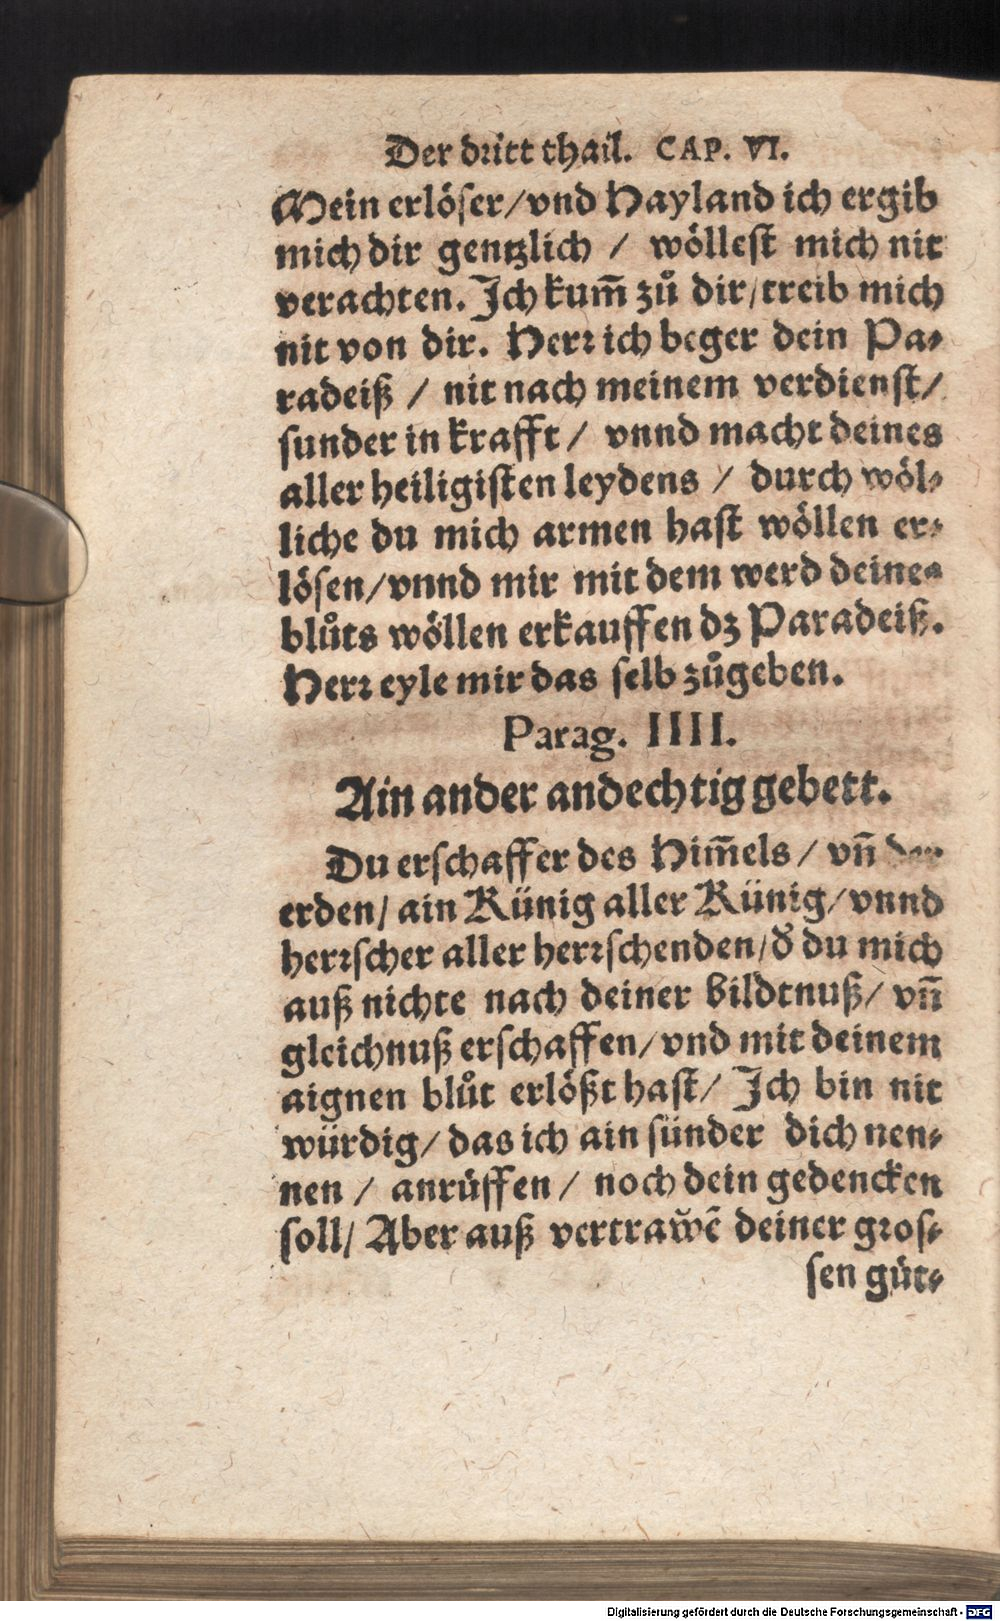 Der dritt thail. CAP. VI.
Mein erlöser/vnd Hayland ich ergib
mich dir gentzlich / wöllest mich nit
verachten. Jch kum̃ zů dir/treib mich
nit von dir. Herr ich beger dein Pa-
radeiß / nit nach meinem verdienst/
sunder in krafft / vnnd macht deines
aller heiligisten leydens / durch wöl-
liche du mich armen hast wöllen er-
lösen/vnnd mir mit dem werd deines
blůts wöllen erkauffen dz Paradeiß.
Herr eyle mir das selb zůgeben.
Parag. IIII.
Ain ander andechtig gebett.
Du erschaffer des Him̃els / vñ der
erden/ ain Künig aller Künig/vnnd
herrscher aller herrschenden/d̕ du mich
auß nichte nach deiner bildtnuß/ vñ
gleichnuß erschaffen/vnd mit deinem
aignen blůt erlößt hast/ Jch bin nit
würdig/ das ich ain sünder dich nen-
nen / anrüffen / noch dein gedencken
soll/ Aber auß vertraw̃ẽ deiner gros-
sen güt-
Digitalisierung gefördert durch die Deutsche Forschungsgemeinschaft - DFG